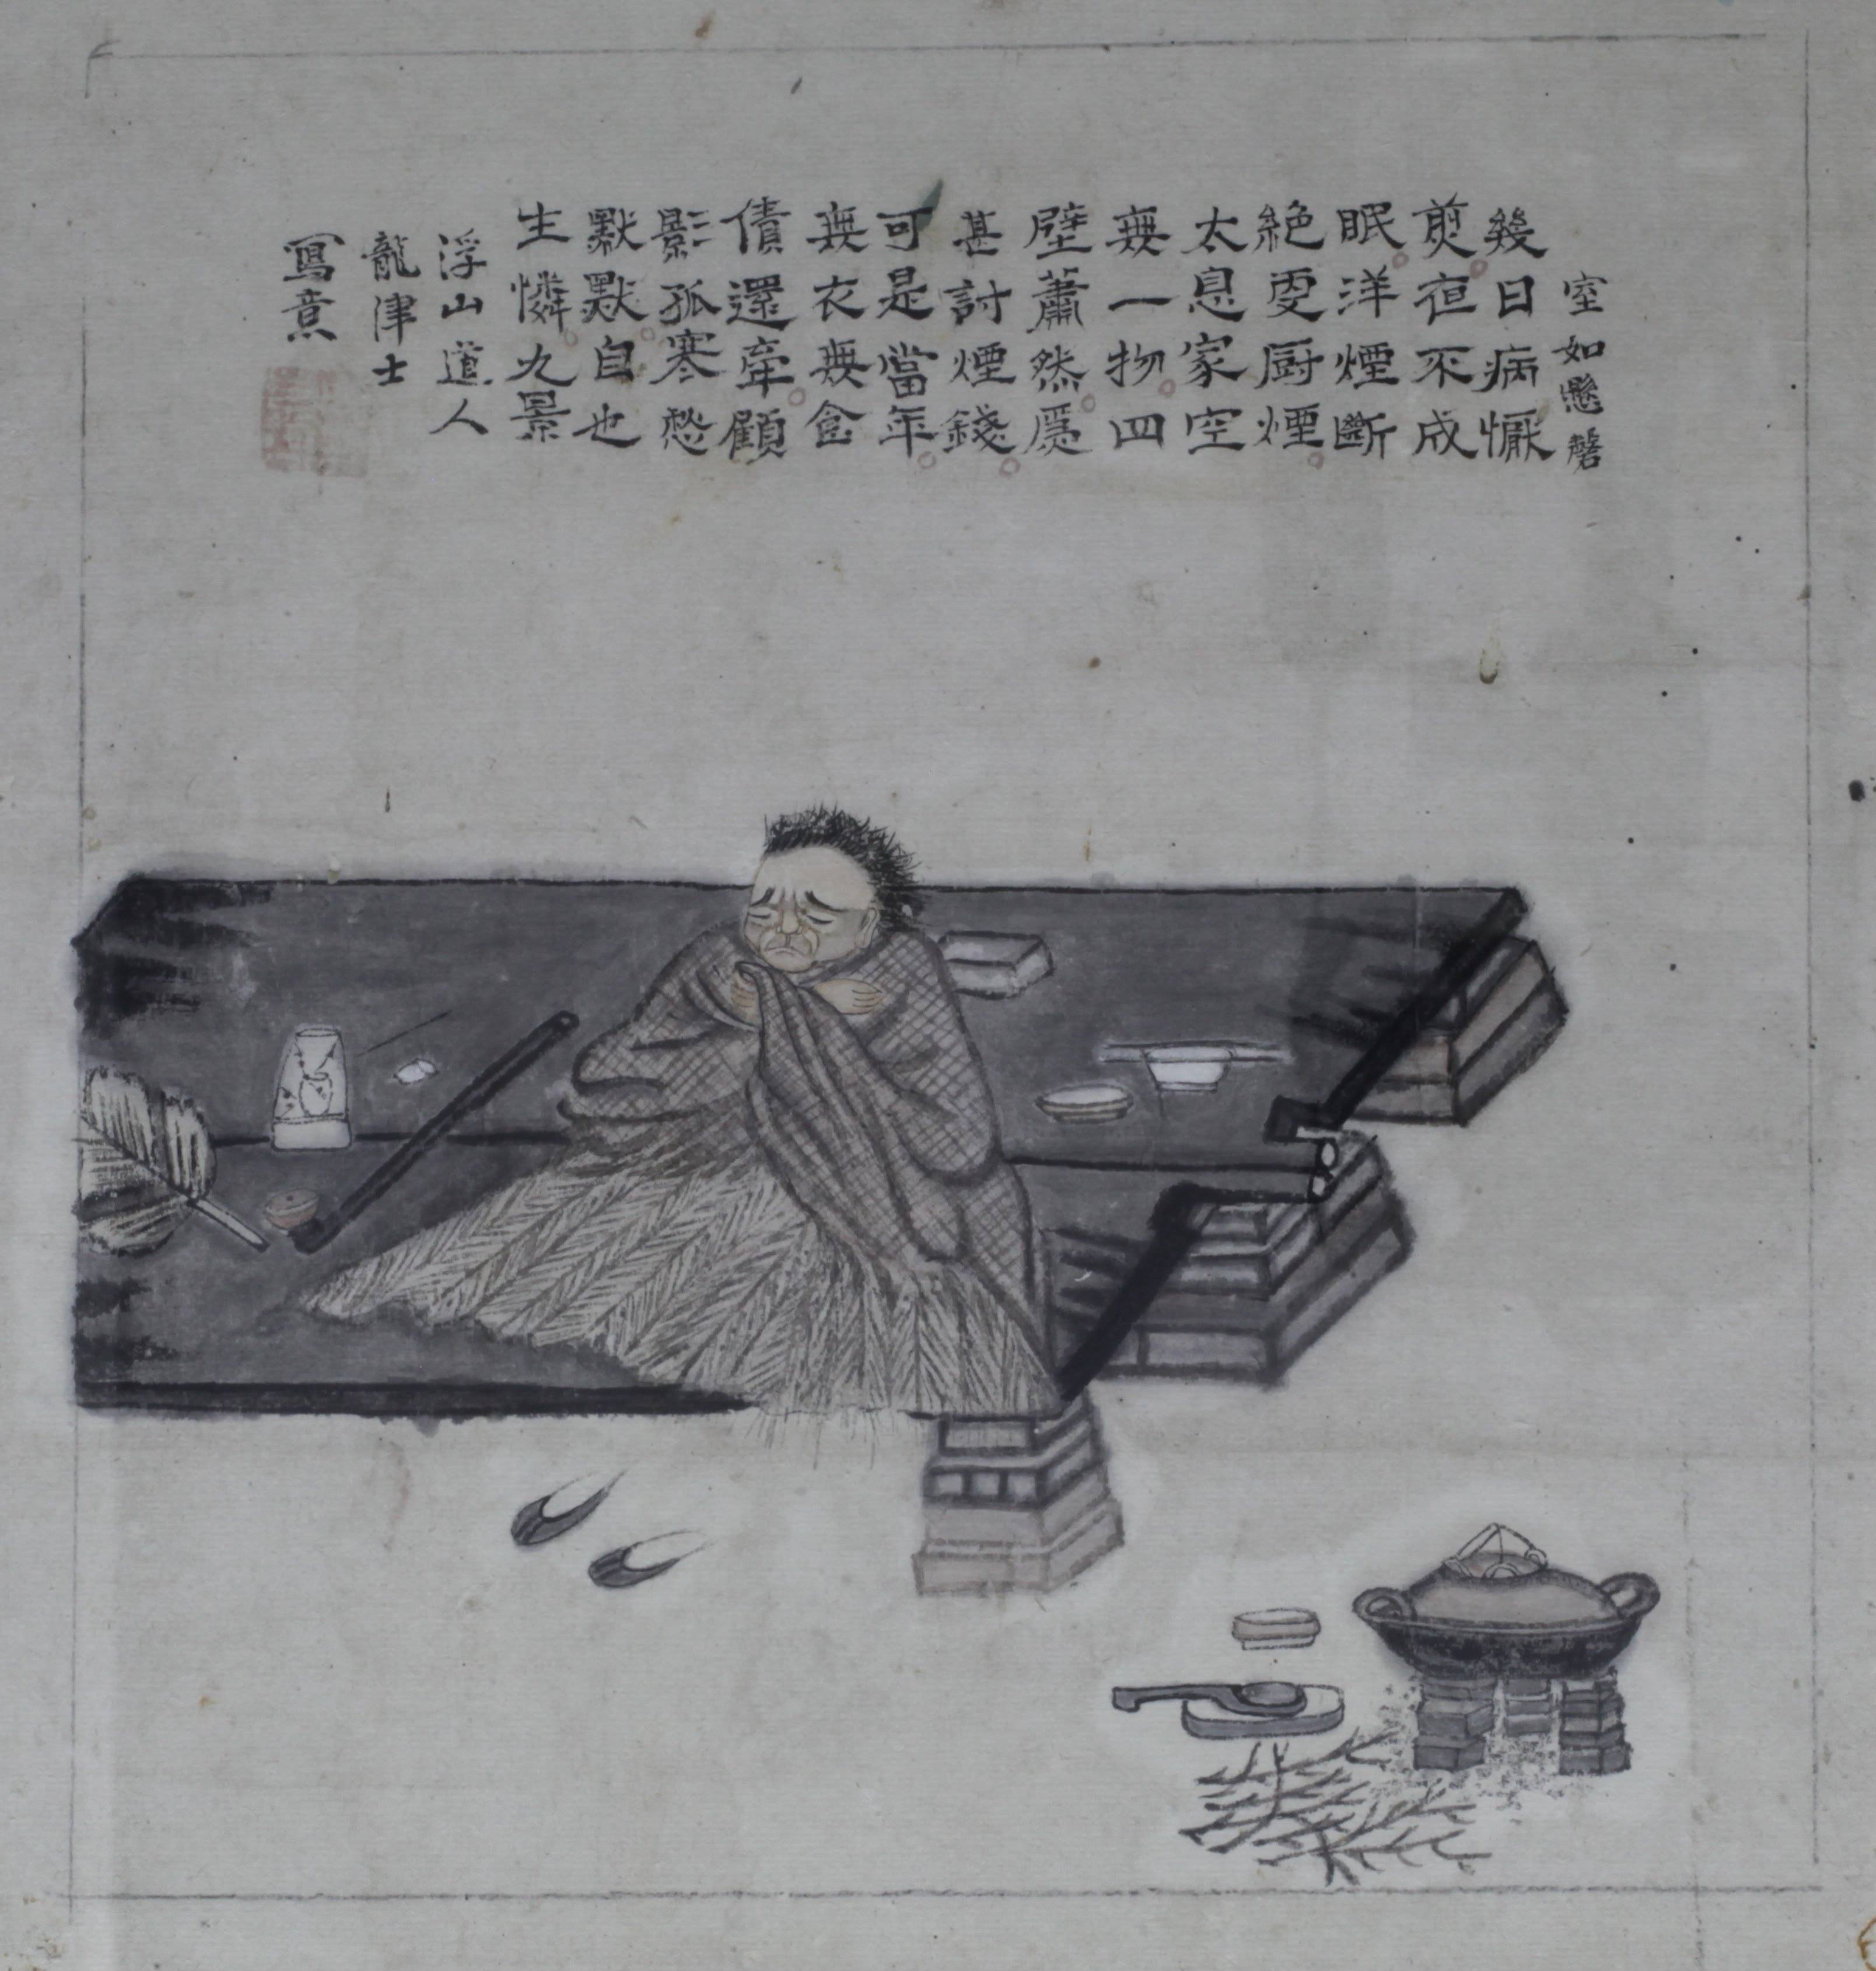 室如懸磬
幾日病懨
煎夜不成
眠洋煙斷
絕更厨煙
太息家空
無一物四
壁蕭然為
甚討煙錢
可是當年
無衣無食
債還牽顧
影孤寒愁
默默自也
生憐九景
浮山道人
龍津士
寫意